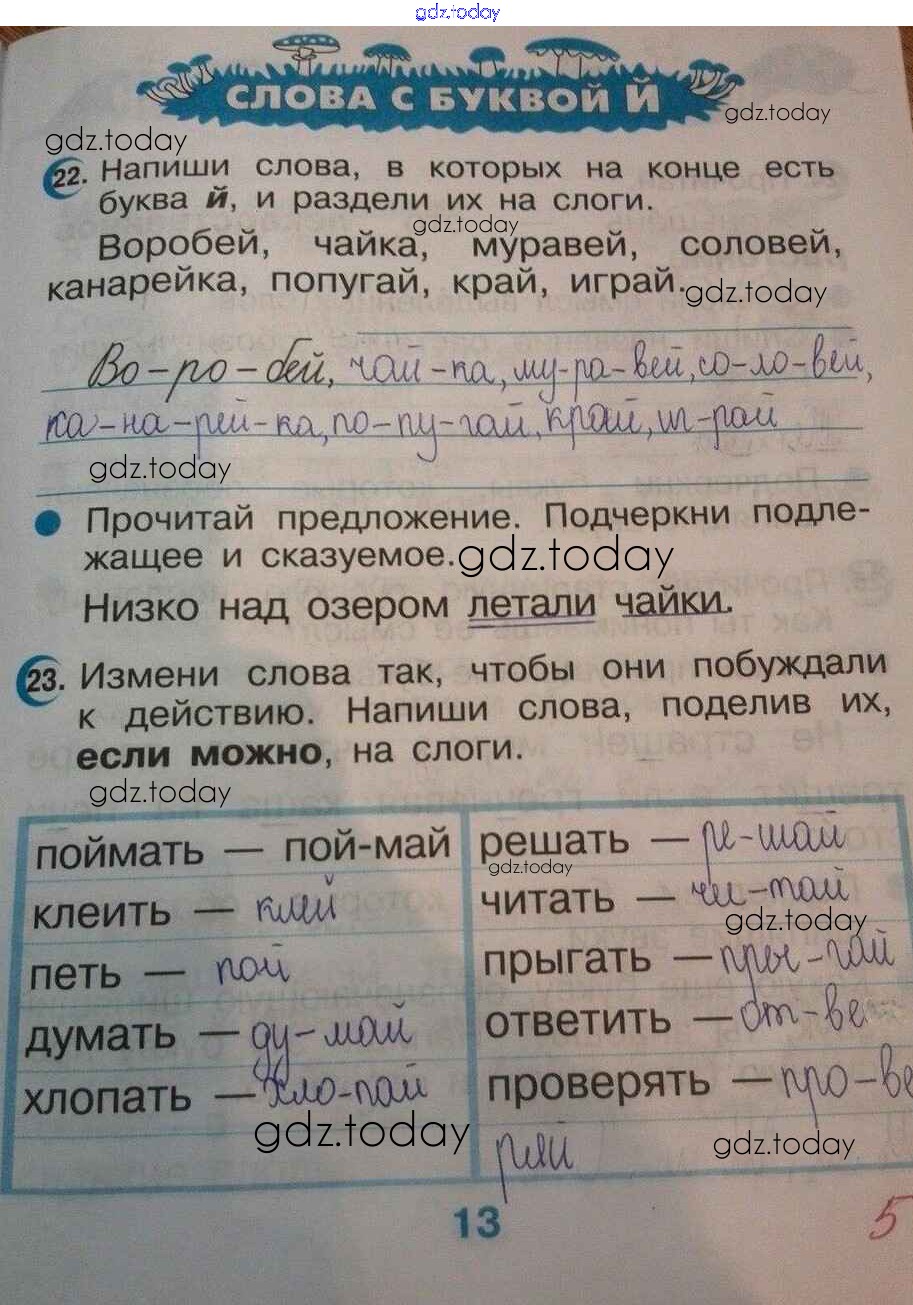 gdz.today
СЛОВА С БУКВОЙ Й
gdz.today
gdz.today
22. Напиши слова, в которых на конце есть
буква й, и раздели их на слоги.
gdz.today
Воробей, чайка, муравей, соловей,
канарейка, попугай, край, играй.
gdz.today
Во-ро-бей, чай-ка, му-ра-вей, со-ло-вей,
ка-на-рей-ка, по-пу-гай, край, иг-рай
gdz.today
Прочитай предложение. Подчеркни подле-
жащее и сказуемое.
gdz.today
Низко над озером летали чайки.
23. Измени слова так, чтобы они побуждали
к действию. Напиши слова, поделив их,
если можно, на слоги.
gdz.today
поймать — пой-май
решать — ре-шай
gdz.today
клеить — клей
читать — чи-тай
gdz.today
петь — пой
прыгать — пры-гай
думать — ду-май
ответить — от-ве
хлопать — хло-пай
проверять — про-ве
gdz.today
ряй
gdz.today
13
5